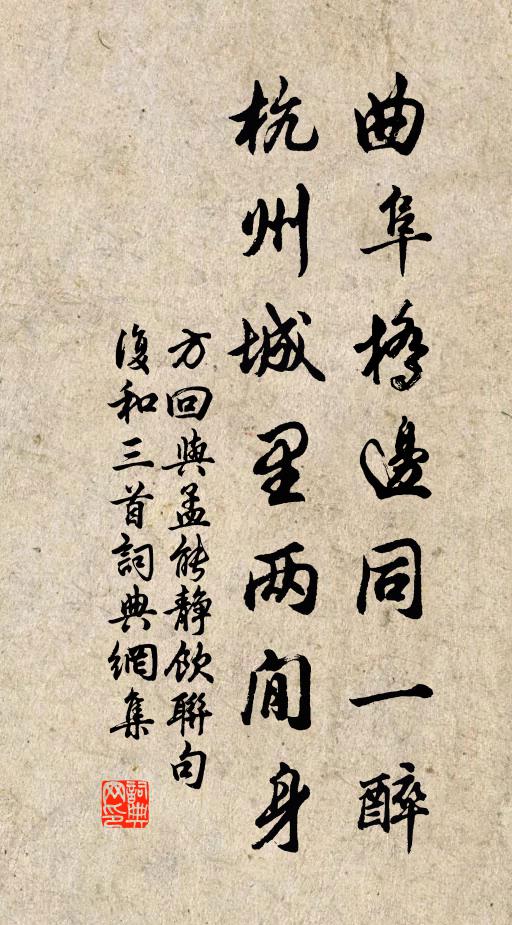 曲阜橋邊同一醉
杭州城里两閒身
方回與孟能靜飲聯句
復和三首詞典網集
詞典
网印